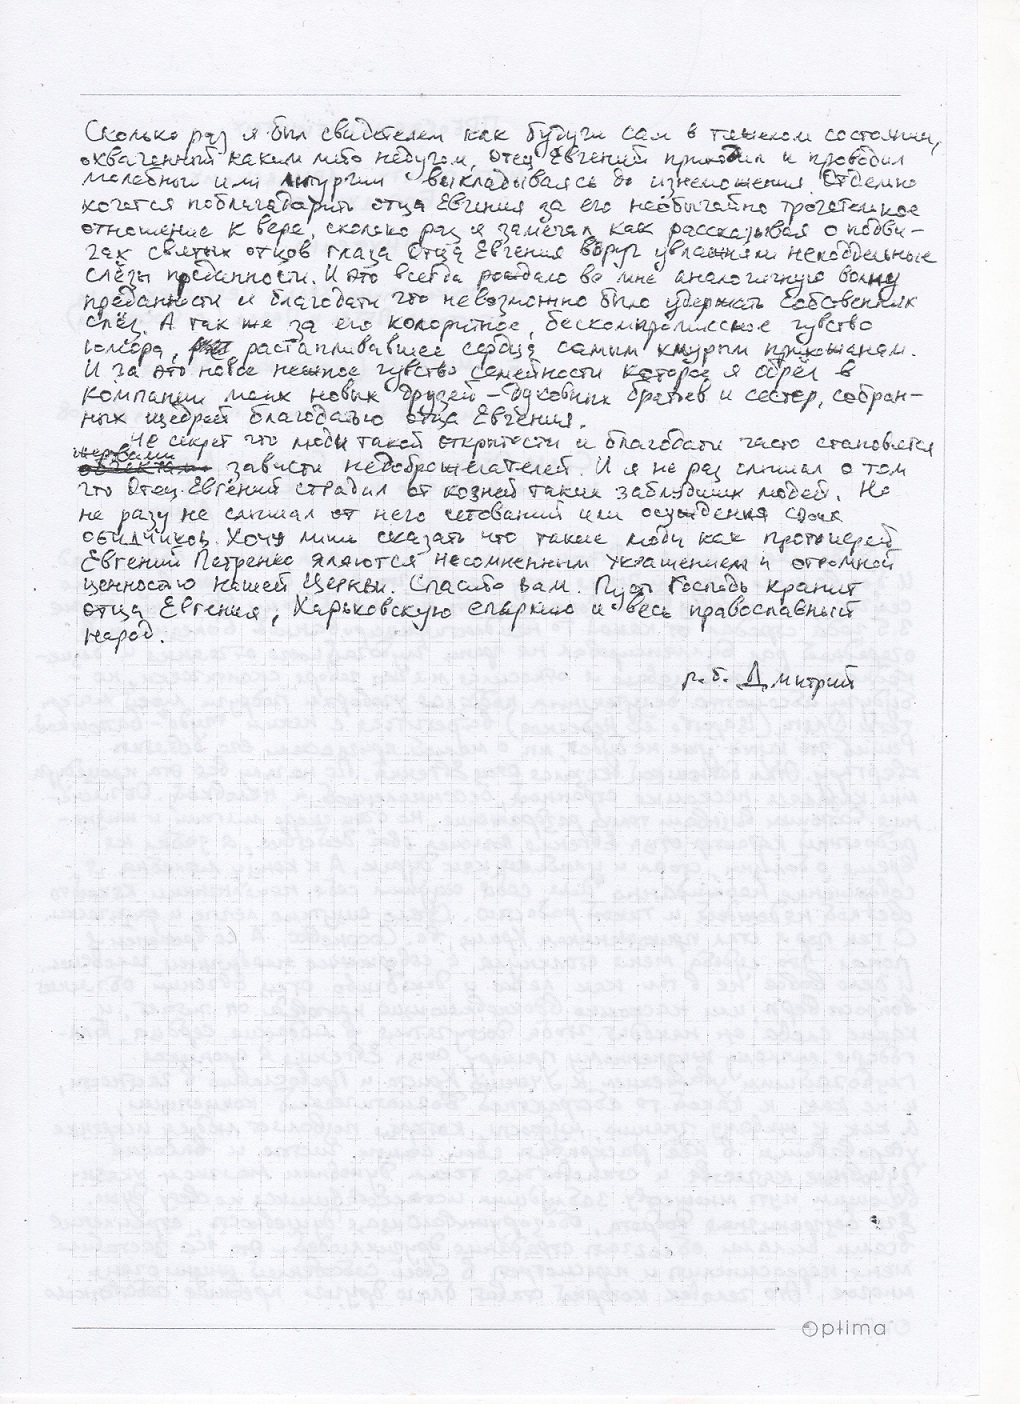 Сколько раз я был свидетелем как будучи сам в тяжелом состоянии,
охваченный каким либо недугом, Отец Евгений приходил и проводил
молебны или литургии выкладываясь до изнеможения. Отдельно
хочется поблагодарить отца Евгения за его необычайно трогательное
отношение к вере, сколько раз я замечал как рассказывая о подви-
гах святых отцов глаза Отца Евгения вдруг увлажняли неподдельные
слёзы преданности. И это всегда рождало во мне аналогичную волну
преданности и благодати что невозможно было удержать собственных
слёз. А так же за его колоритное, бескомпромиссное чувство
юмора, растапливавшее сердца самым хмурым прихожанам.
И за это новое нежное чувство семейности которое я обрёл в
компании моих новых друзей – духовных братьев и сестер, собран-
ных щедрой благодатью отца Евгения.
Не секрет что люди такой открытости и благодати часто становятся
жертвами зависти недоброжелателей. И я не раз слышал о том
что Отец Евгений страдал от козней таких заблудших людей. Но
не разу не слышал от него сетований или осуждения своих
обидчиков. Хочу лишь сказать что такие люди как протоиерей
Евгений Петренко являются несомненным украшением и огромной
ценностью нашей Церкви. Спасибо вам. Пусть Господь хранит
отца Евгения, Харьковскую епархию и весь православный
народ.
р. б. Дмитрий
Optima